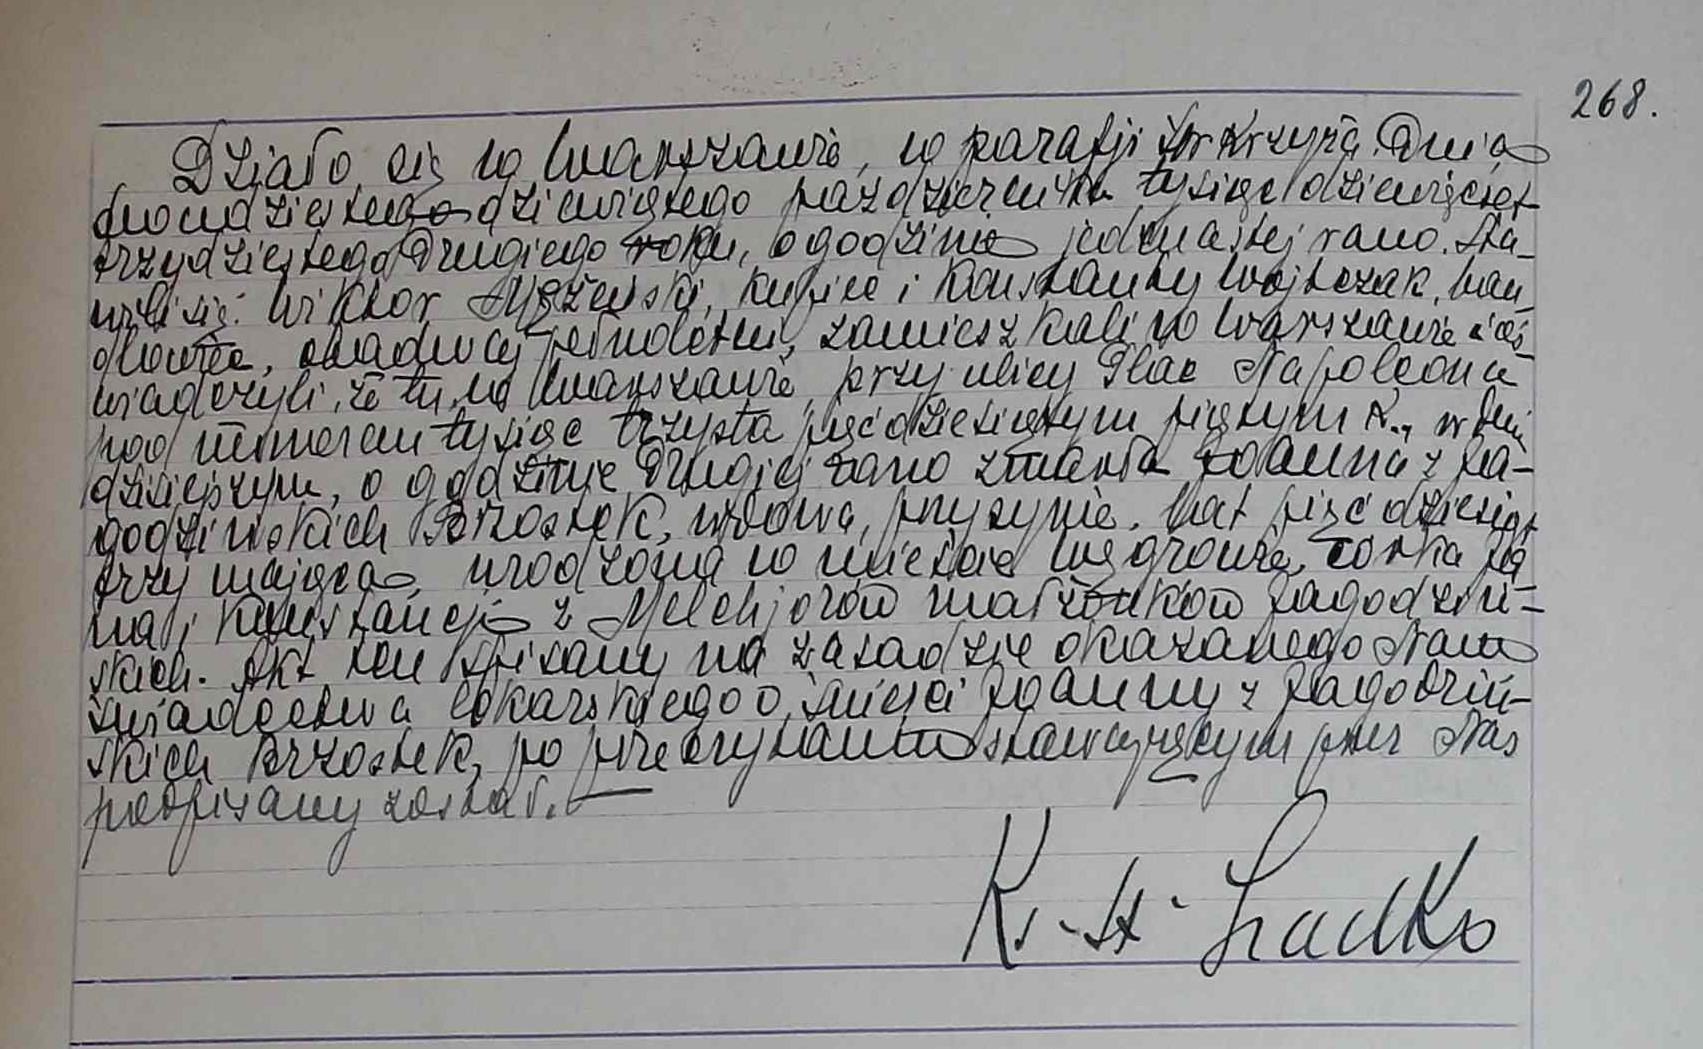 268.
Działo się w Warszawie, w parafji Św. Krzyża. Dnia
dwudziestego dziewiątego października tysiąc dziewięćset
trzydziestego drugiego roku, o godzinie jedenastej rano. Sta-
wili się: Wiktor kupiec i Konstanty Wojtczak, han-
dlowiec, obadwaj pełnoletni, zamieszkali w Warszawie i oś-
wiadczyli, że tu, w Warszawie, przy ulicy Plac Napoleona
pod numerem tysiąc trzysta pięćdziesiątym piątym A., w dniu
dzisiejszym, o godzinie drugiej rano zmarła Joanna z Ja-
godzińskich Brzostek, wdowa, przy synie, lat pięćdziesiąt
trzy mająca, urodzona w mieście Węgrowie, córka Ja-
na i Konstancji z Melchjorów małżonków Jagodziń-
skich. Akt ten spisany na zasadzie okazanego Nam
świadectwa lekarskiego o śmierci Joanny z Jagodziń-
skich Brzostek, po przeczytaniu stawającym przez Nas
podpisany został.